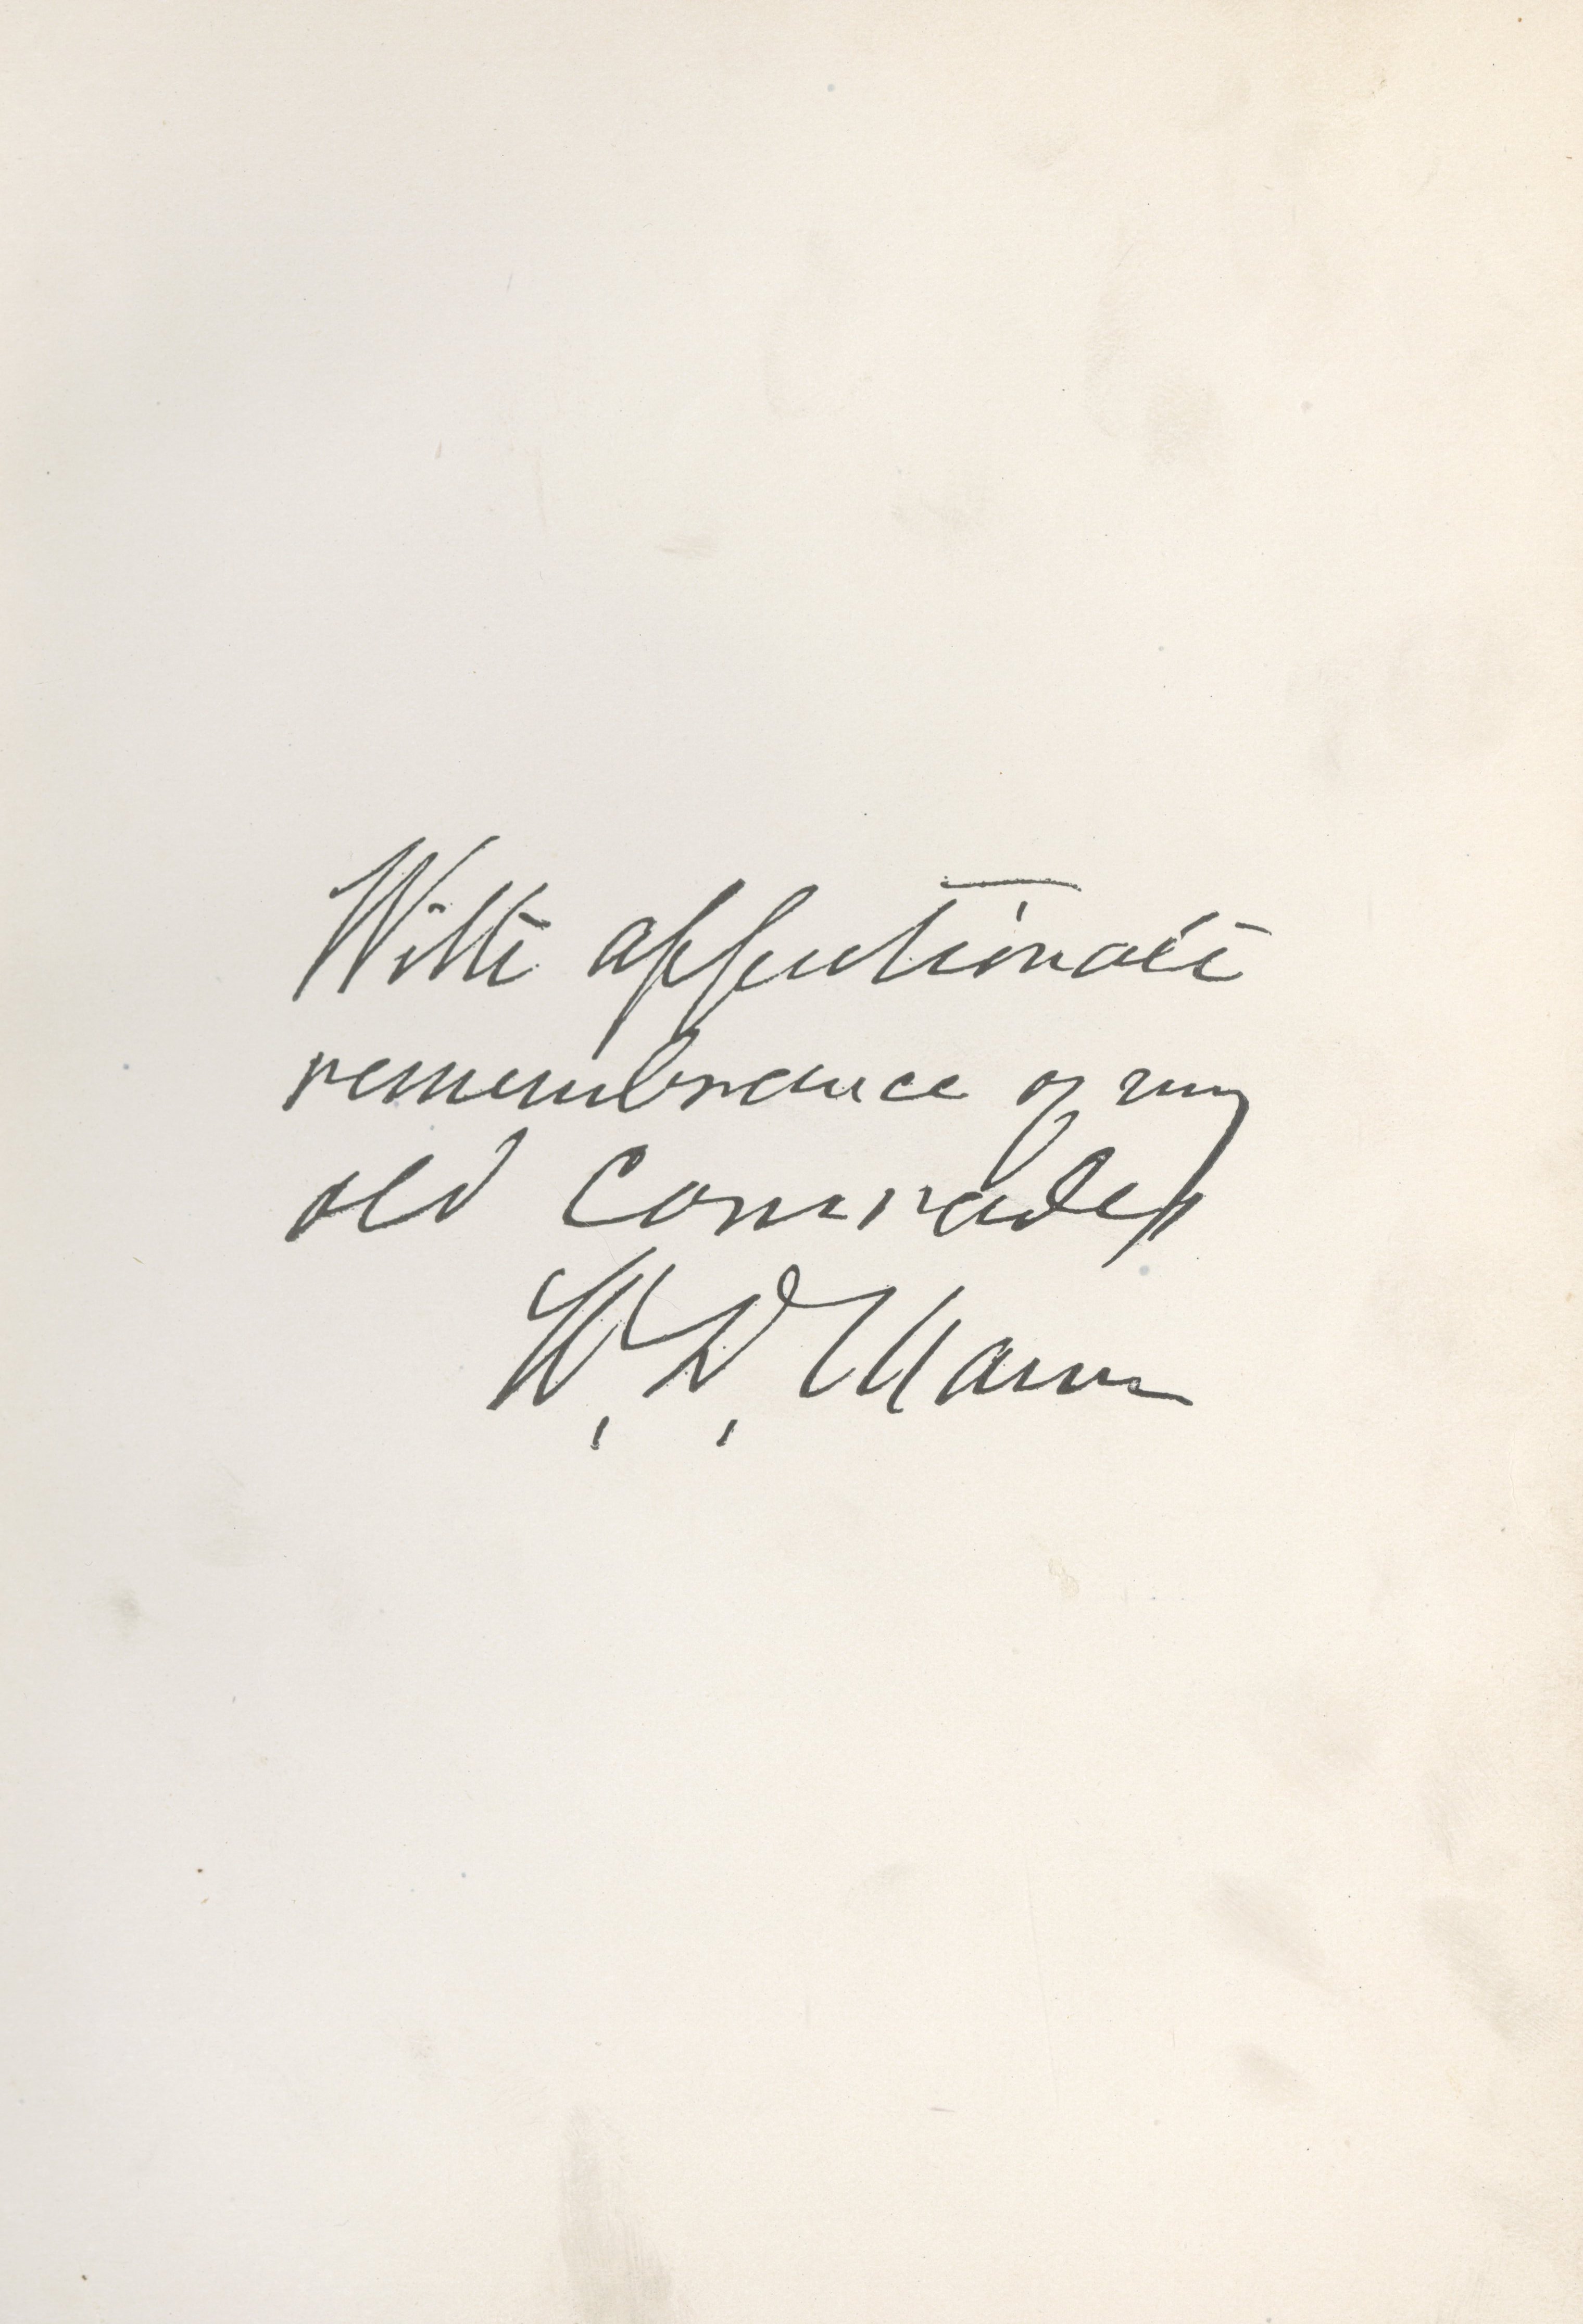 With affectionate
remembrance of my
old Comrades
W. D. Mann